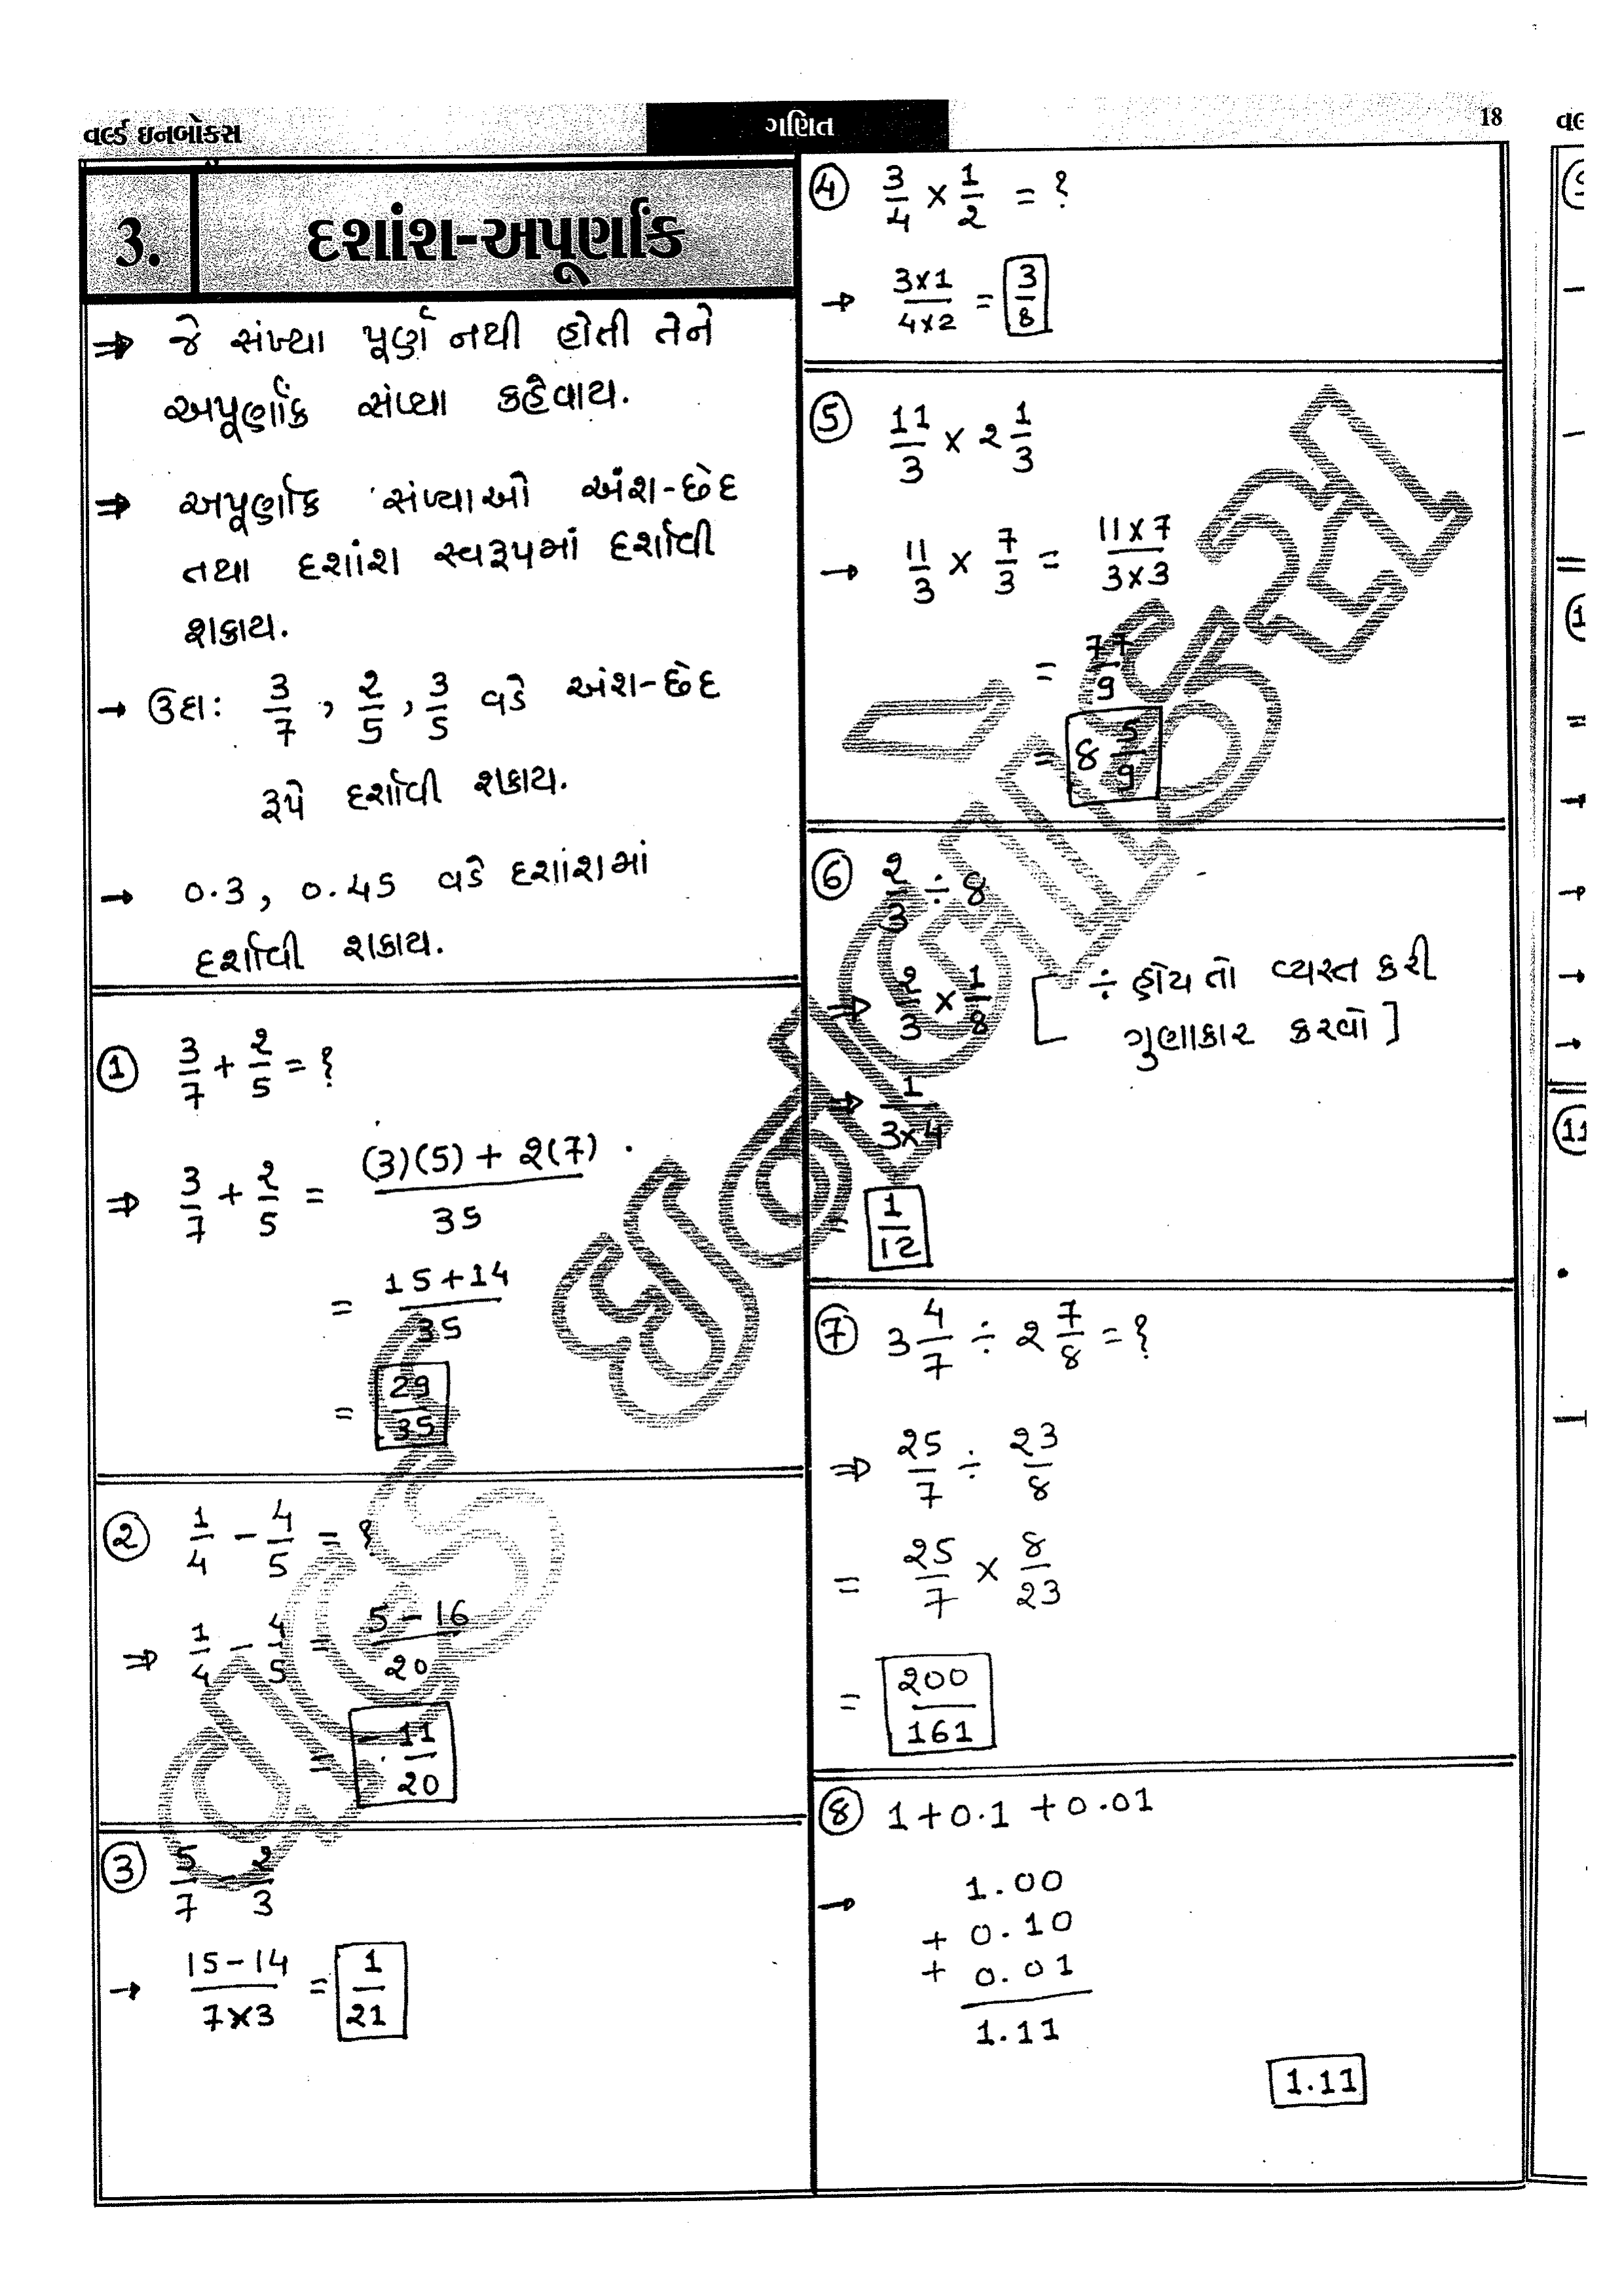 વર્લ્ડ ઇનબોક્સ
ગણિત
18
૩.
દશાંશ-અપૂર્ણાંક
⇒ જે સંખ્યા પૂર્ણ નથી હોતી તેને
અપૂર્ણાંક સંખ્યા કહેવાય.
⇒ અપૂર્ણાંક સંખ્યાઓ અંશ-છેદ
તથા દશાંશ સ્વરૂપમાં દર્શાવી
શકાય.
→ ઉદા: 3/7, 2/5, 3/5 વડે અંશ-છેદ
રૂપે દર્શાવી શકાય.
→ 0.3, 0.45 વડે દશાંશમાં
દર્શાવી શકાય.
① 3/7 + 2/5 = ?
⇒ 3/7 + 2/5 = (3)(5) + 2(7) / 35
= 15+14 / 35
= 29/35
② 1/4 - 4/5 = ?
⇒ 1/4 - 4/5 = 5-16 / 20
= -11/20
③ 5/7 - 2/3
→ 15-14 / 7×3 = 1/21
④ 3/4 × 1/2 = ?
→ 3×1 / 4×2 = 3/8
⑤ 11/3 × 2 1/3
→ 11/3 × 7/3 = 11×7 / 3×3
= 77/9
= 8 5/9
⑥ 2/3 ÷ 8
⇒ 2/3 × 1/8 [ ÷ હોય તો વ્યસ્ત કરી
ગુણાકાર કરવો ]
⇒ 1 / 3×4
= 1/12
⑦ 3 4/7 ÷ 2 7/8 = ?
⇒ 25/7 ÷ 23/8
= 25/7 × 8/23
= 200/161
⑧ 1+0.1+0.01
→ 1.00
+ 0.10
+ 0.01
1.11
1.11